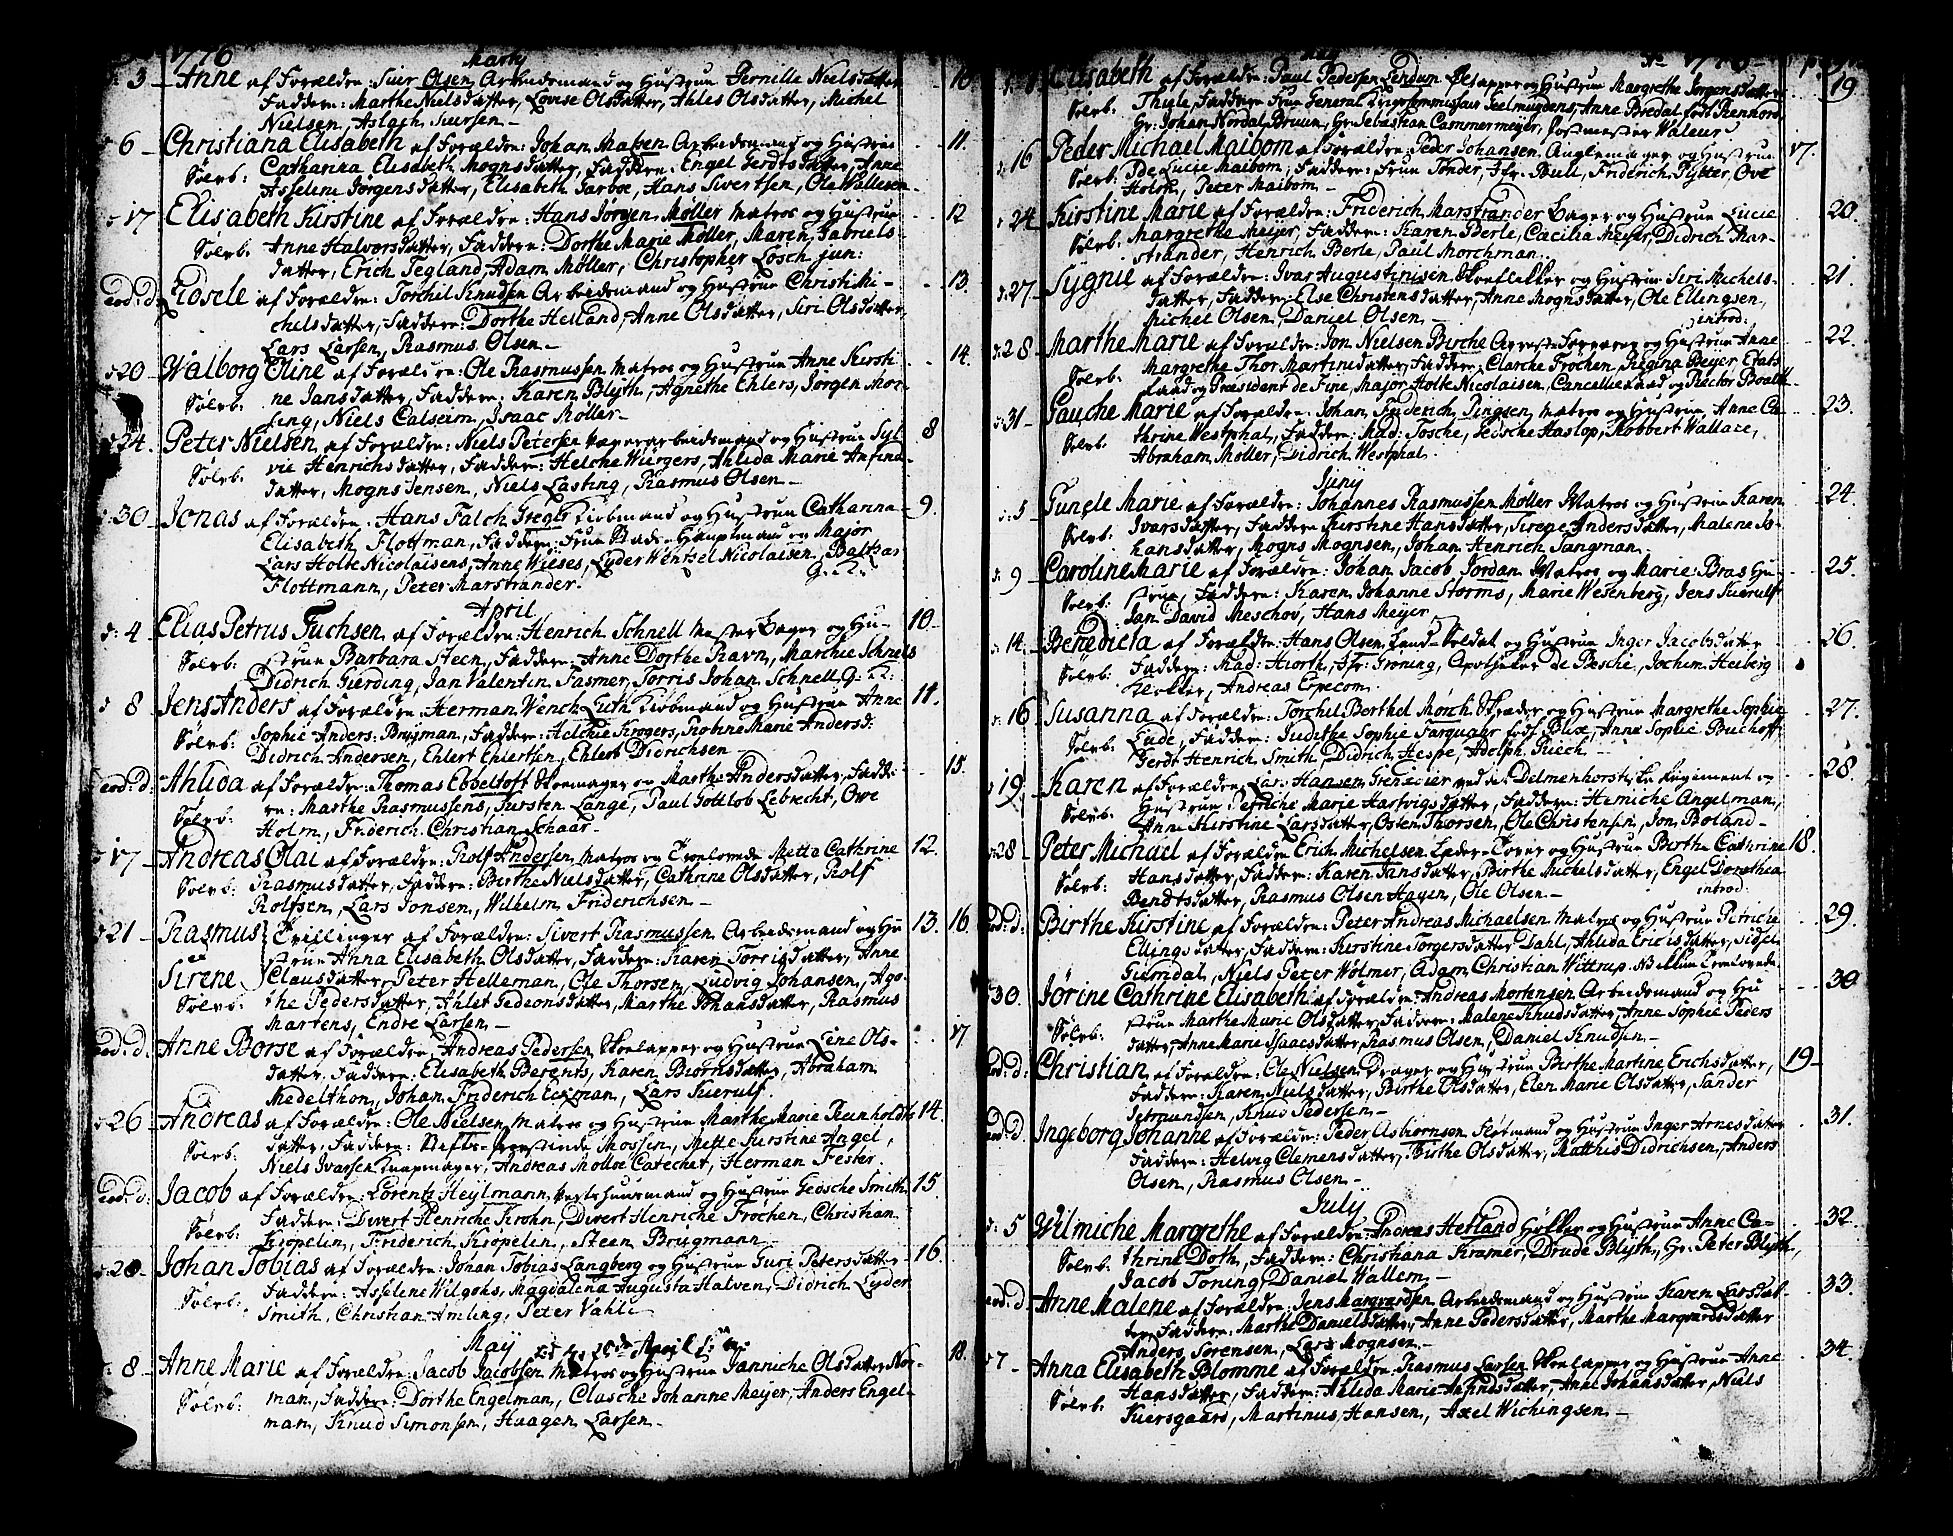 1776
Marty
d: 3 Anne af Forældre: Siver Olsen Arbeidsmand og Hustrue Pernille Nielsdatter 10
Faddere: Marthe Nielsdatter, Lovise Olsdatter, Ahles Olsdatter, Michel
Nielsen, Aslach Siversen
6 Christiana Elisabeth af Forældre: Johan Madsen Arbeidsmand og Hustrue 11.
Sølvb: Catharina Elisabeth Mognsdatter, Faddere: Engel Gerdtsdatter, Anne
Asseline Jørgensdatter, Elisabeth Garboe, Hans Sivertsen, Ole Wallesen
17 Elisabeth Kirstine af Forældre: Hans Jørgen Møller Matros og Hustrue 12
Sølvb. Anne Halvorsdatter, Faddere: Dorthe Marie Møller, Maren Gabriels-
datter, Erich Tegland, Adam Møller, Christopher Losch jun:
eod: d: Gidsele af Forældre: Torchil Knudsen Arbeidsmand og Hustrue Christi Mi- 13.
chelsdatter, Faddere: Dorthe Helland, Anne Olsdatter, Siri Olsdatter,
Lars Larsen, Rasmus Olsen
20 Walborg Oline af Forældre: Ole Rasmussen Matros og Hustrue Anne Kirsti- 14.
Sølvb. ne Jansdatter, Faddere: Karen Blyth, Agnethe Ehlers, Jørgen Mor-
seng, Niels Calseim, Isaac Møller
24 Peter Nielsen af Forældre: Niels Petersen arbeidsmand og Hustrue Syl- 8
Sølvb. vie Henrichsdatter, Faddere: Helche Würgers, Ahlida Marie Anfinds-
datter, Mogns Jensen, Niels Lasting, Rasmus Olsen
30 Jonas af Forældre: Hans Falch Greger Kiøbmand og Hustrue Catharina 9.
Elisabeth Flottman, Faddere: Frue Hauptmand og Major
Lars Holte Nicolaisens, Anne Wieses, Lyder Wentzel Nicolaisen, Baltzar
Flottmann, Peter Marstrander. G. K.
April
d: 4 Elias Petrus Fuchsen af Forældre: Henrich Schnell Mester Bager og Hu- 10
Sølvb. strue Barbara Steen, Faddere: Anne Dorthe Ravn, Marchie Schnels
Didrich Gierding, Jan Valentin Fasmer, Jorris Johan Schnell G: K:
8 Jens Anders af Forældre: Herman Wench Luth Kiøbmand og Hustrue Anne 11.
Sølvb: Sophie Anders: Brugman, Faddere: Helchie Krogers, Robine Marie Andersd:
Didrich Andersen, Ehlert Ehlertsen, Ehlert Didrichsen
eod: d: Ahlida af Forældre: Thomas Ebbeltoft Skomager og Marthe Andersdatter, Fadde- 15.
Sølvb: re: Marthe Rasmussens, Tursten Lange, Paul Gottlob Lebrecht, Ove
Holm, Friderich Christian Schaar
17 Andreas Olai af Forældre: Rolf Andersen Matros og Trolovede Metta Cathrine 12.
Sølvb: Rasmusdatter, Faddere: Birthe Nielsdatter, Cathrine Olsdatter, Rolf
Rolfsen, Lars Jonsen, Wilhelm Friderichsen
21 Rasmus Tvillinger af Forældre: Sivert Rasmussen Arbeidsmand og Hu 13. 16.
strue Anna Elisabeth Olsdatter, Faddere: Karen Torrisdatter, Anne
Sirene Clausdatter, Peter Helleman, Ole Thorsen, Ludvig Johansen, Ago-
Sølvb: the Pedersdatter, Ahlet Gedeonsdatter, Marthe Johansdatter, Rasmus
Martens, Endre Larsen
eod: d: Anne Børse af Forældre: Andreas Pedersen Skoelapper og Hustrue Lene Ols- 17
datter, Faddere: Elisabeth Berents, Karen Biørnsdatter, Abraham
Medelthon, Johan Friderich Eckman, Lars Suerulf.
26 Andreas af Forældre: Ole Nielsen Matros og Hustrue Marthe Marie Reinholdts 14.
Sølvb: datter, Faddere: Stifts-Provstinde Mossin, Mette Kirstine Angel,
Niels Ivarsen Knapmager, Andreas Moldoe Catechet, Herman Fester.
eod: d: Jacob af Forældre: Lorentz Heylmann Vertshuusmand og Hustrue Gedsche Smith 15.
Sølvb: Faddere: Divert Henriche Krohn, Divert Henriche Frochen, Christian
Kiøpelin, Friderich Kiøpelin, Steen Brugmann
28 Johan Tobias af Forældre: Johan Tobias Langberg og Hustrue Guri Petersdatter 16.
Sølvb: Faddere: Asseline Wilgohs, Magdalena Augusta Halven, Didrich Lyder
Smith, Christian Amling, Peter Vahli
May
8 Anne Marie af Forældre: Jacob Jacobsen Matros og Hustrue Janniche Olsdatter Nor- 18.
Sølvb: man, Faddere: Dorthe Engelman, Clasche Johanne Meyer, Anders Engel-
man, Knud Simonsen, Haagen Larsen
Elisabeth af Forældre: Paul Pedersen Lendum og Hustrue Margrethe Jørgensdatter 19
Sølvb. Thyle, Faddere: Frue General Krigscommissair Seelmugdens, Anne Bredal fød Rennord,
Hr: Johan Nordal Bruun, Hr: Sebastian Cammermeyer, Postmester Valeur
16 Peder Michael Maibom af Forældre: Peder Johansen Anglemager og Hustrue 17.
Sølvb. Ide Lucie Maibom, Faddere: Frue Tonder, Jfr: Bull, Friderich Pytter, Ove
Holm, Peter Maibom
24 Kirstine Marie af Forældre: Friderich Marstrander Bager og Hustrue Lucie 20.
Sølvb. Margrethe Meyer, Faddere: Karen Berle, Cacilia Meyer, Didrich Mar-
strander, Henrich Berle, Paul Morchman
d: 27 Sygnii af Forældre: Ivar Augustinisen Skoeflikker og Hustrue Siri Michels- 21.
datter, Faddere: Else Christensdatter, Anne Mognsdatter, Ole Ellingsen,
Michel Olsen, Daniel Olsen introd:
28 Marthe Marie af Forældre: Jon Nielsen Birche og Hustrue Anne 22.
Sølvb. Margrethe Thor Martinsdatter, Faddere: Clarche Frochen, Regina Beyer, Etats-
raad og Præsident de Fine, Major Holte Nicolaisen, Cancellieraad og Rector Boalth
d: 31 Gauche Marie af Forældre: Johan Friderich Pingsen Matros og Hustrue Anne Ca- 23.
Sølvb. thrine Westphal, Faddere: Mad: Tosche, Gedsche Haslop, Robbert Wallace,
Abraham Møller, Didrich Westphal.
Juny
d: 5 Gungle Marie af Forældre: Johannes Rasmussen Møller Matros og Hustrue Karen 24.
Sølvb. Ivarsdatter, Faddere: Kirstine Hansdatter, Sirene Andersdatter, Malene Jo-
hansdatter, Mogns Mognsen, Johan Henrich Tangman.
d: 9 Caroline Marie af Forældre: Johan Jacob Jordan Matros og Marie Bras Hu- 25.
Sølvb: strue, Faddere: Karen Johanne Storms, Marie Wesenberg, Jens Suerulf
Jan David Meschov, Hans Meyer
14 Benedicta af Forældre: Hans Olsen Land-Soldat og Hustrue Inger Jacobsdatter 26.
Sølvb: Faddere: Mad: Hiorth, Jfr: Groning, Apotheker de Besche, Jochim Heiberg
Andreas Erpecom.
16 Susanna af Forældre: Torchil Berthel Mørch Skræder og Hustrue Margrethe Sophie 27.
Sølvb: Lude, Faddere: Judithe Sophie Farquahr fød Blix, Anne Sophie Buchoff
Gerdt Henrich Smith, Didrich Hespe, Adolph Riech
19 Karen af Forældre: Lars Hansen Grenadier ved det Delmenhorstiske Regiment og 28.
Sølvb. Hustrue Petriche Marie Hartvigsdatter, Faddere: Hemiche Angelman,
Anne Kirstine Larsdatter, Osten Thorsen, Ole Christensen, Jon Boland
28 Peter Michael af Forældre: Erich Michelsen og Hustrue Birthe Cathrine 18.
Sølvb: Hansdatter, Faddere: Karen Jansdatter, Birthe Michelsdatter, Engel Dorothea
Bendtsdatter, Rasmus Olsen Hagen, Ole Olsen introd:
eod: d: Birthe Kirstine af Forældre: Peter Andreas Michaelsen Matros og Hustrue Petricha 29.
Ellingsdatter, Faddere: Kirstine Torgersdatter Dahl, Ahlida Ericisdatter, Sidsel
Giendal, Niels Peter Wolmer, Adam Christian Wittrup.
30. Jørine Cathrine Elisabeth af Forældre: Andreas Mortensen Arbeidsmand og Hu 30
Sølvb: strue Marthe Marie Olsdatter, Faddere: Malene Knudsdatter, Anne Sophie Peders
datter, Anne Marie Isaacsdatter, Rasmus Olsen, Daniel Knudsen
eod: d: Christian af Forældre: Ole Nielsen Drager og Hustrue Birthe Martine Erichsdatter, 19
Faddere: Karen Nielsdatter, Birthe Olsdatter, Elen Marie Olsdatter, Sander
Germundsen, Knud Pedersen
eod: d: Ingeborg Johanne af Forældre: Peder Asbiørnsen Fløtmand og Hustrue Inger Arnesdatter 31.
Faddere: Helvig Clemensdatter, Birthe Olsdatter, Matthis Didrichsen, Anders
Olsen, Rasmus Olsen
July
d: 5 Wilmiche Margrethe af Forældre: Andreas Hetland Høkker og Hustrue Anne Ca- 32.
Sølvb. thrine Doth, Faddere: Christiana Kramer, Drude Blyth, Hr: Peter Blyth,
Jacob Toning, Daniel Wallem
eod: d: Anne Malene af Forældre: Jens Marqvardsen Arbeidsmand og Hustrue Karen Larsdat- 33.
ter, Faddere: Marthe Danielsdatter, Anne Pedersdatter, Marthe Marqvardsdatter
Anders Sørensen, Lars Mognsen
7 Anna Elisabeth Blomme af Forældre: Rasmus Larsen Skoelapper og Hustrue Anne 34.
Sølvb. Hansdatter, Faddere: Ahlida Marie Anfindsdatter, Anne Johansdatter, Niels
Kiersgaard, Martinus Hansen, Axel Wichingsen